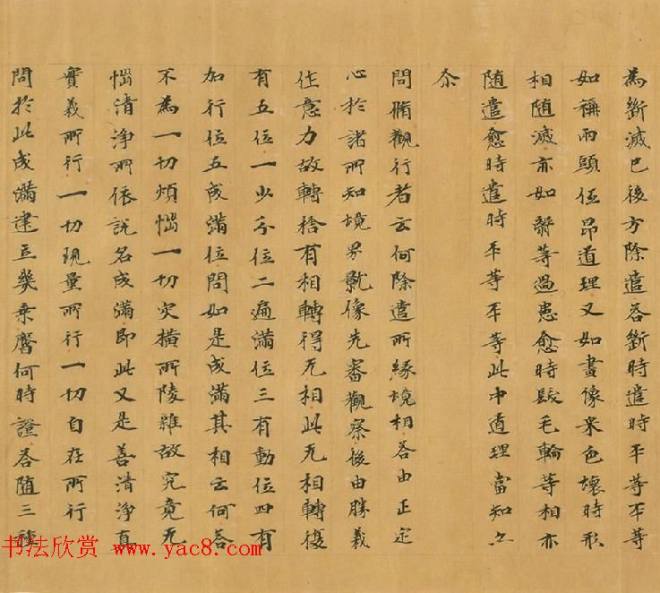 為斷滅已後方除遣荅斷時遣時平等平等
如稱兩頭伍昂道理又如畫像采色壞時形
相随滅亦如翳等過患愈時髮毛輪等相亦
随遣愈時遣時平等平等此中道理當知亦
尒
問脩觀行者云何除遣所緣境相荅由正定
心於諸所知境界影像先審觀察後由勝義
作意力故轉捨有相轉得无相此无相轉復
有五位一少分位二遍滿位三有動位四有
加行位五成滿位問如是成滿其相云何荅
不為一切煩惱一切灾橫所陵雜故究竟无
惱清淨所依說名成滿即此又是善清淨真
實義所行一切現量所行一切自在所行
問於此成滿建立幾乘膺何時證荅随三種
书法欣赏 www.yac8.com